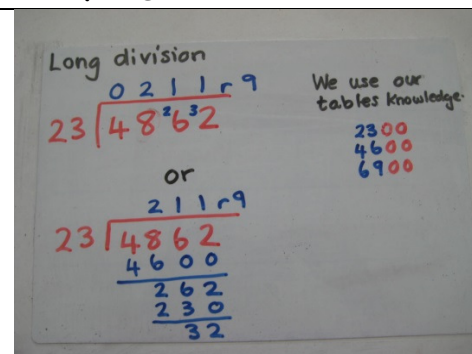 Long division
0 2 1 1 r 9
23 4 8 ²6 ³2
We use our
tables knowledge.
2300
4600
6900
or
2 1 1 r 9
23 4862
4600
262
230
32